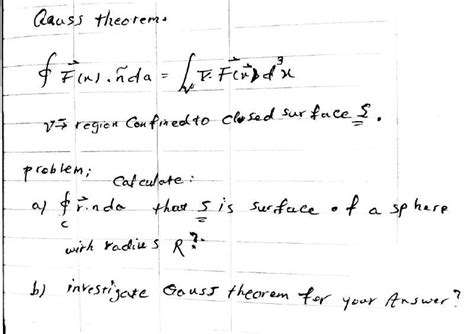 Gauss theorem.
∮ F⃗(x) . n̄ da = ∫_v ∇⃗. F⃗(x⃗) d³x
v → region Confined to closed surface S.
problem; Calculate:
a) ∮_c r⃗ . n da that S is surface of a sphere
with radius R?
b) investigate Gauss theorem for your Answer?